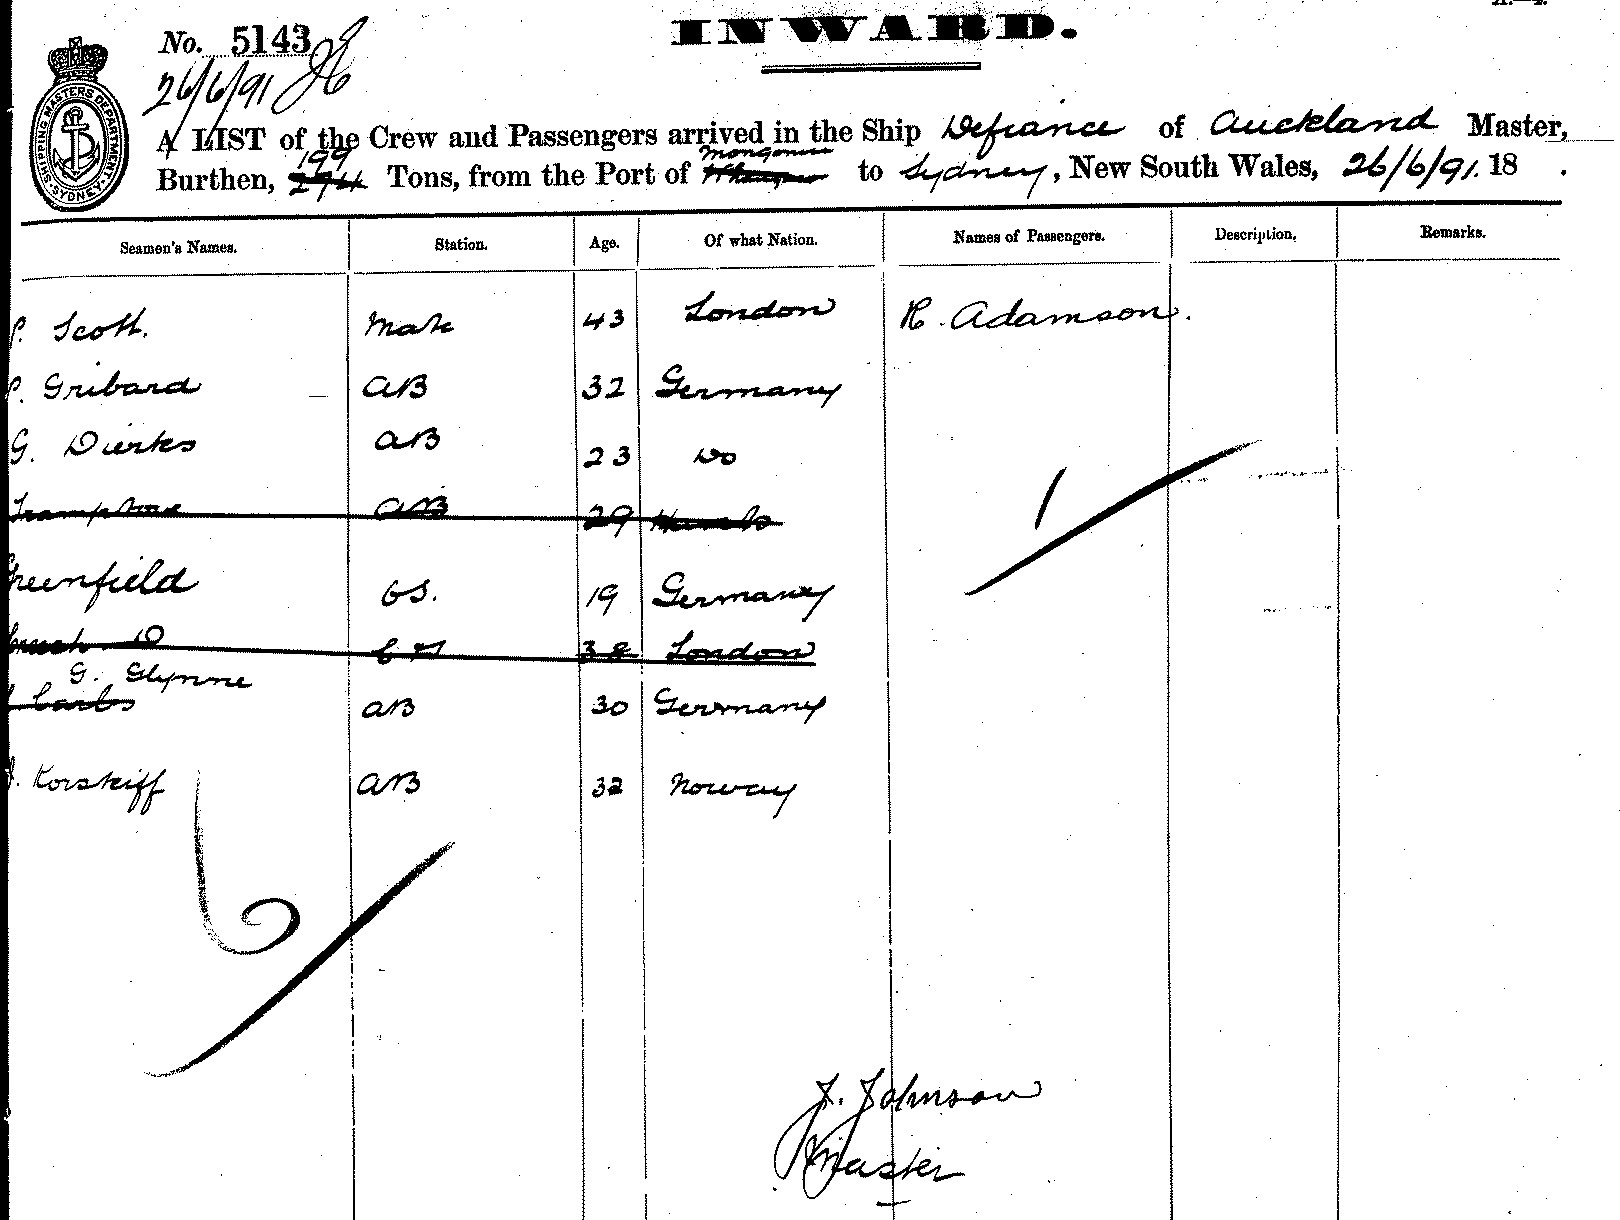 INWARD.
No. 5143
26/6/91
SHIPPING MASTERS DEPARTMENT SYDNEY
A LIST of the Crew and Passengers arrived in the Ship Defiance of Auckland Master,
Burthen, 199 Tons, from the Port of Mongonui to Sydney, New South Wales, 26/6/91. 18 .
Seamen's Names. Station. Age. Of what Nation. Names of Passengers. Description. Remarks.
P. Scott. Mate 43 London R. Adamson.
P. Gribard AB 32 Germany
G. Dierks AB 23 Do
AB 29
Greenfield OS. 19 Germany
38 London
G. Glynne
AB 30 Germany
Korskiff AB 32 Norway
1
6
J. Johnson
Master